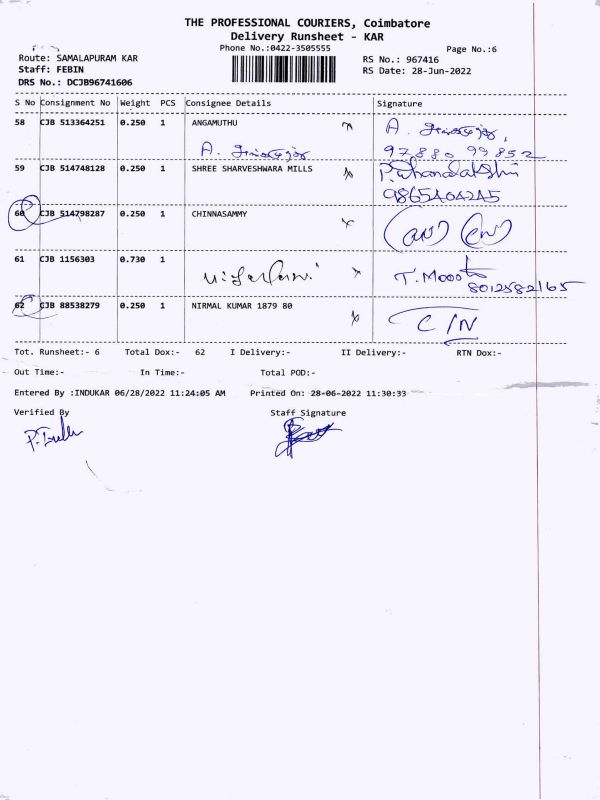 THE PROFESSIONAL COURIERS, Coimbatore
Delivery Runsheet - KAR
Phone No.:0422-3505555
Page No.:6
Route: SAMALAPURAM KAR
RS No.: 967416
Staff: FEBIN
RS Date: 28-Jun-2022
DRS No.: DCJB96741606
S No Consignment No Weight PCS Consignee Details Signature
58 CJB 513364251 0.250 1 ANGAMUTHU A.
A.
97880 99852
59 CJB 514748128 0.250 1 SHREE SHARVESHWARA MILLS
60 CJB 514798287 0.250 1 CHINNASAMMY
61 CJB 1156303 0.730 1
8012582165
62 CJB 88538279 0.250 1 NIRMAL KUMAR 1879 80 C/N
Tot. Runsheet:- 6 Total Dox:- 62 I Delivery:- II Delivery:- RTN Dox:-
Out Time:- In Time:- Total POD:-
Entered By :INDUKAR 06/28/2022 11:24:05 AM Printed On: 28-06-2022 11:30:33
Verified By Staff Signature